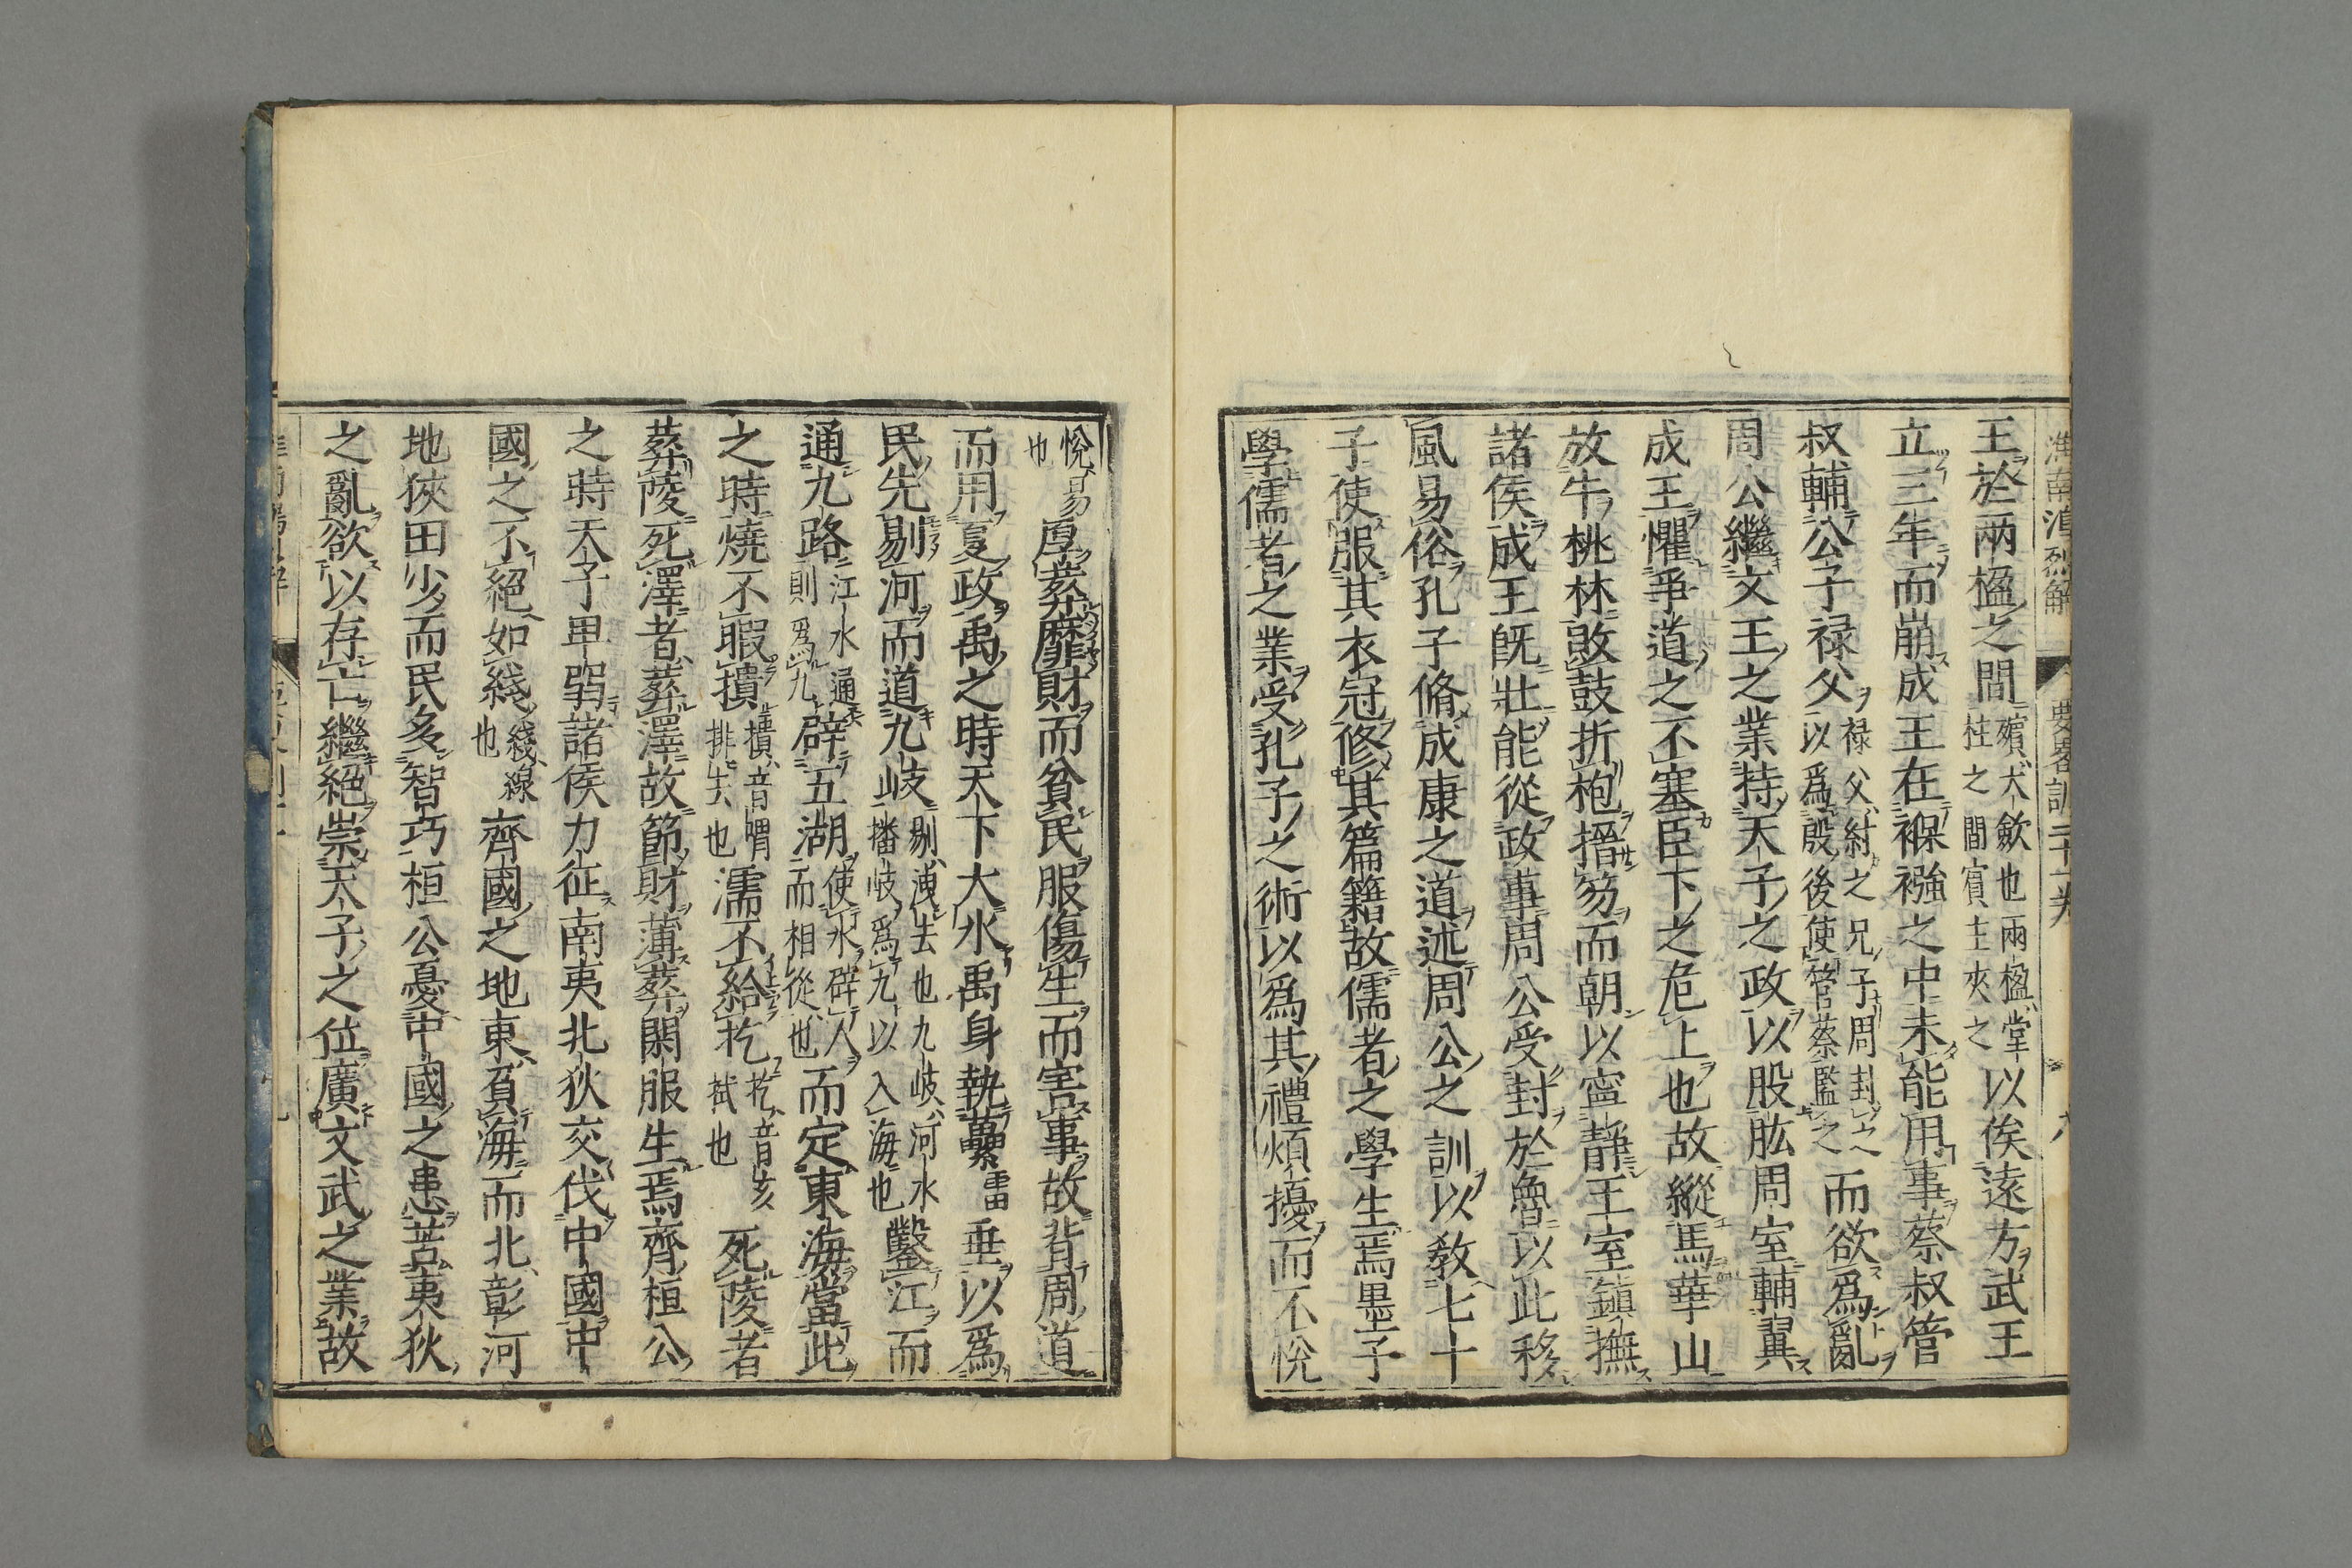 淮南鴻烈解 要畧訓二十一卷
王於兩楹之間殯大斂也兩楹堂柱之間賓主夾之以俟遠方武王
立三年而崩成王在褓襁之中未能用事蔡叔管
叔輔公子禄父禄父紂之兄子周封之以爲殷後使管蔡監之而欲爲亂
周公繼文王之業持天子之政以股肱周室輔翼
成王懼爭道之不塞臣下之危上也故縱馬華山
放牛桃林敗鼓折枹搢笏而朝以寧靜王室鎮撫
諸侯成王既壯能從政事周公受封於魯以此移
風易俗孔子脩成康之道述周公之訓以教七十
子使服其衣冠修其篇籍故儒者之學生焉墨子
學儒者之業受孔子之術以爲其禮煩擾而不悅
悅易也厚葬靡財而貧民服傷生而害事故背周道
而用夏政禹之時天下大水禹身執虆雷垂以爲
民先剔河而道九岐剔洩去也九岐河水播岐爲九以入海也鑿江而
通九路江水通則爲九辟五湖使水辟人而相從也而定東海當此
之時燒不暇撌撌音喟排去也濡不給扢扢音亥拭也死陵者
葬陵死澤者葬澤故節財薄葬閑服生焉齊桓公
之時天子卑弱諸侯力征南夷北狄交伐中國中
國之不絕如綫綫線也齊國之地東負海而北彰河
地狹田少而民多智巧桓公憂中國之患苦夷狄
之亂欲以存亡繼絕崇天子之位廣文武之業故